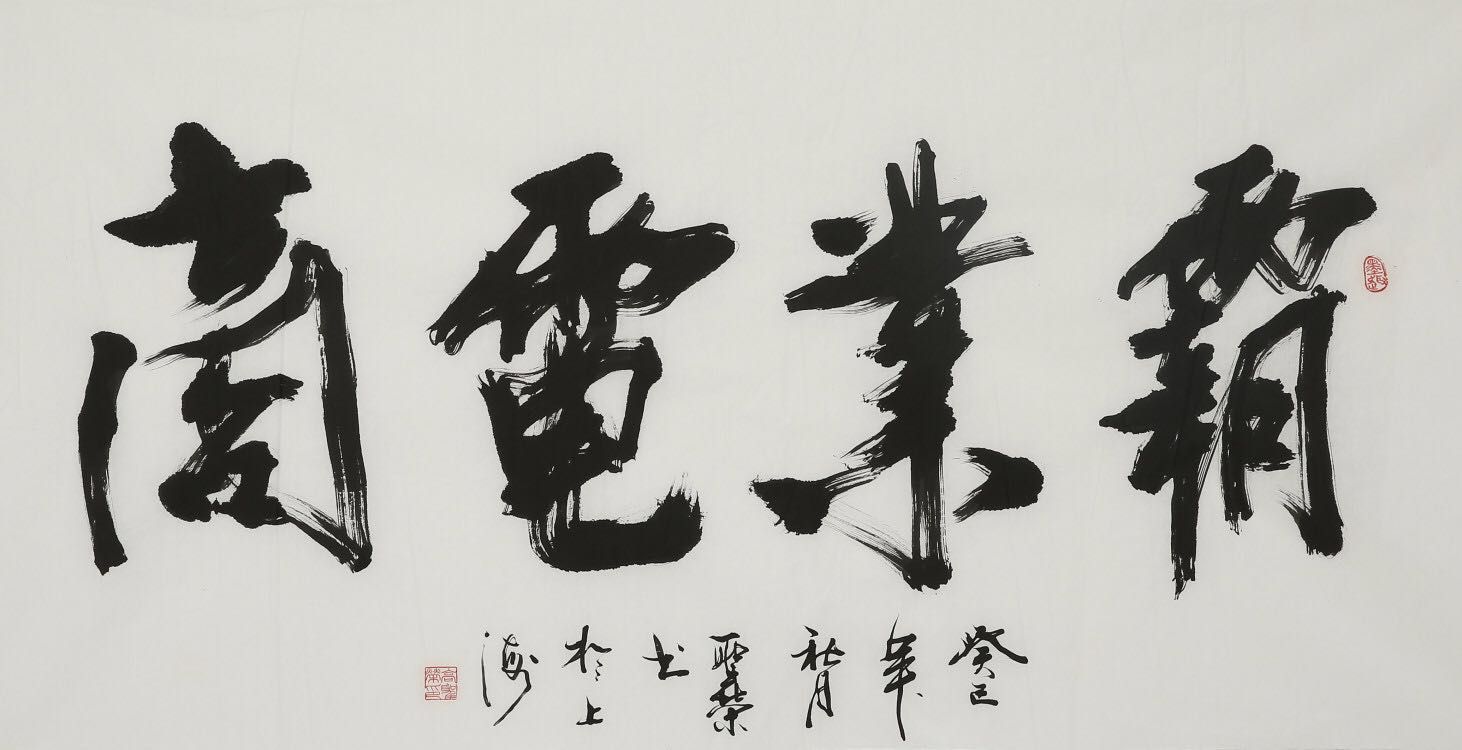 霸業電商
癸巳年秋月聖榮书於上海